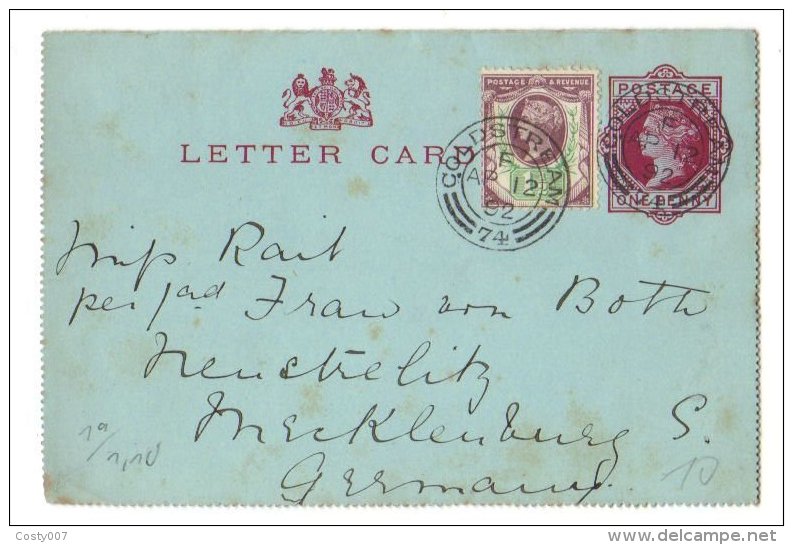 LETTER CARD
POSTAGE & REVENUE
POSTAGE
ONE PENNY
COLDSTREAM
F
AP 12
92
74
Miss Rait
per
Frau von Both
Neustrelitz
Mecklenburg S.
Germany
10
Costy007
delcampe.net